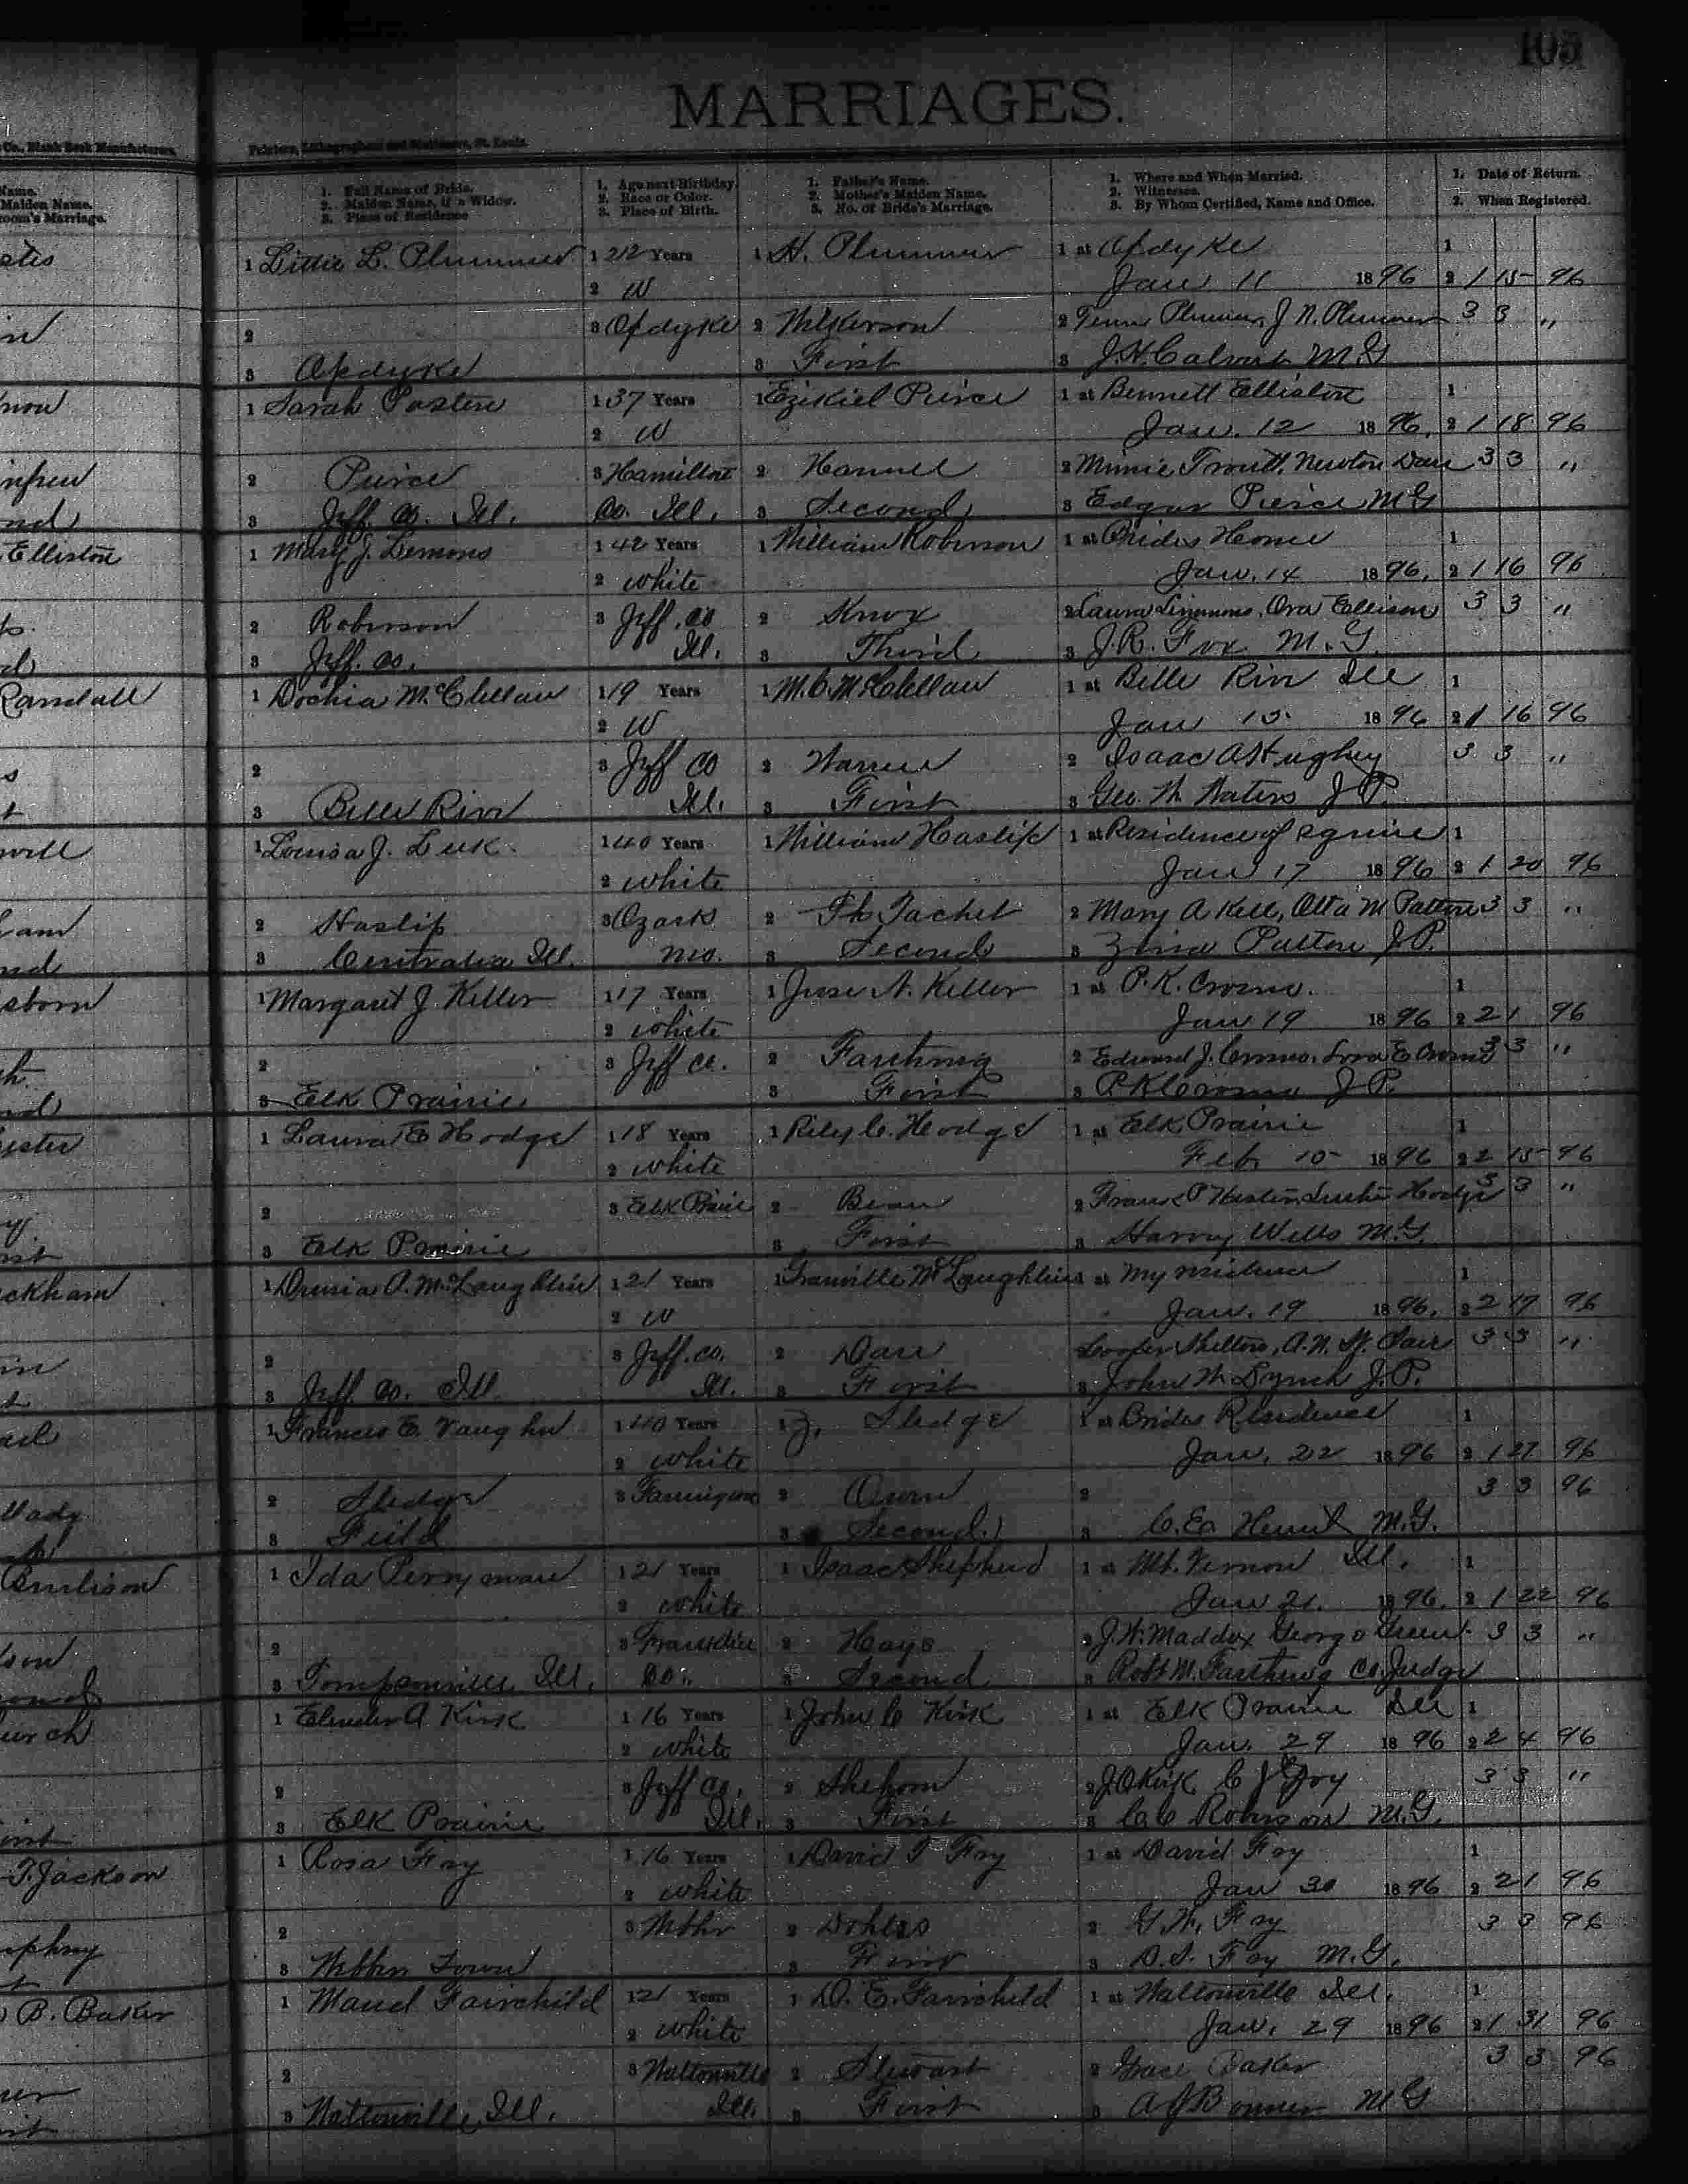 105
MARRIAGES.
Co., Blank Book Manufacturers, Printers, Lithographers and Stationers, St. Louis.
Name. 1. Full Name of Bride. 1. Age next Birthday. 1. Father's Name. 1. Where and When Married. 1. Date of Return.
Maiden Name. 2. Maiden Name, if a Widow. 2. Race or Color. 2. Mother's Maiden Name. 2. Witnesses. 2. When Registered.
Groom's Marriage. 3. Place of Residence 3. Place of Birth. 3. No. of Bride's Marriage. 3. By Whom Certified, Name and Office.
1 Littie L. Plummer 1 22 Years 1 H. Plummer 1 at Opdyke 1
2 W Jan 11 1896 2 1 15 96
2 3 Opdyke 2 Wilkerson 2 Plummer, J N. Plummer 3 3 "
3 Opdyke 3 First 3 J.H. Calvert M G
1 Sarah Posten 1 37 Years 1 Ezikiel Peirce 1 at Bennett Elliston 1
2 W Jan. 12 1896. 2 1 18 96
2 Peirce 3 Hamilton 2 Hamel 2 Minnie Troutt, Newton Dare 3 3 "
3 Jeff. Co. Ill. Co. Ill. 3 Second 3 Edgar Pierce M G
Elliston 1 Mary J. Lemons 1 42 Years 1 William Robinson 1 at Brides Home 1
2 white Jan. 14 1896. 2 1 16 96
2 Robinson 3 Jeff. Co 2 Knox 2 Laura Simmons, Ora Ellison 3 3 "
3 Jeff. Co. Ill. 3 Third 3 J.R. Fox M.G.
Randall 1 Dochia McClellan 1 19 Years 1 M.C. McClellan 1 at Belle Rive Ill 1
2 W Jan 15. 1896 2 1 16 96
2 3 Jeff Co 2 Warren 2 Isaac A Hughey 3 3 "
3 Belle Rive Ill. 3 First 3 Geo. W. Waters J P.
1 Louisa J. Luk. 1 40 Years 1 William Haslip 1 at Residence of Squire 1
2 white Jan 17 1896 2 1 20 96
2 Haslip 3 Ozark 2 Tachet 2 Mary A Kell, Otta M Patton 3 3 "
3 Centralia Ill. Mo. 3 Second 3 Patton J.P.
1 Margaret J. Keller 1 17 Years 1 Jesse N. Keller 1 at P.K. Crosno. 1
2 white Jan 19 1896 2 2 1 96
2 3 Jeff Co. 2 Farthing 2 Edward J. Crosno. E Crosno 3 3 "
3 Elk Prairie 3 First 3 P K Crosno J P.
1 Laura E Hodge 1 18 Years 1 Riley C. Hodge 1 at Elk Prairie 1
2 white Feb 10 1896 2 2 15 96
2 3 Elk Prairie 2 Bean 2 Frank P Hodge 3 3 "
3 Elk Prairie 3 First 3 Harvey Wells M.G.
1 A. McLaughlin 1 21 Years 1 Granville McLaughlin 1 at My residence 1
2 W Jan. 19 1896. 2 2 19 96
2 3 Jeff. Co. 2 Dare Shelton, A.N. St. Clair 3 3 "
3 Jeff. Co. Ill Ill. 3 First 3 John W Lynch J.P.
1 Frances E. Vaughn 1 40 Years 1 Z. Sledge 1 at Brides Residence 1
2 white Jan. 22 1896 2 1 27 96
2 Sledge 3 Farrington 2 Owen 2 3 3 96
3 Field 3 Second. 3 C.E. M.G.
1 Ida Perryman 1 21 Years 1 Isaac Shepherd 1 at Mt. Vernon Ill. 1
2 white Jan 21. 1896. 2 1 22 96
2 3 Franklin 2 Hays 2 J.W. Maddox George Green 3 3 "
3 Tompsonville Ill. Co. 3 Second 3 Robt M. Farthing Co. Judge
1 A Kirk 1 16 Years 1 John C Kirk 1 at Elk Prairie Ill 1
2 white Jan. 29 1896 2 2 4 96
2 3 Jeff Co. 2 Shehorn 2 J.O Kirk C J Goy 3 3 "
3 Elk Prairie Ill. 3 First 3 C.C Robinson M.G.
T. Jackson 1 Rosa Foy 1 16 Years 1 David T Foy 1 at David Foy 1
2 white Jan 30 1896 2 2 1 96
2 3 2 2 G.W. Foy 3 3 96
3 Town 3 First 3 D.T. Foy M.G.
B. Baker 1 Maud Fairchild 1 21 Years 1 D. E. Fairchild 1 at Waltonville Ill. 1
2 white Jan. 29 1896 2 1 31 96
2 3 Waltonville 2 Stewart 2 Grace Baker 3 3 96
3 Waltonville Ill. Ill. 3 First 3 A J Bonner M G